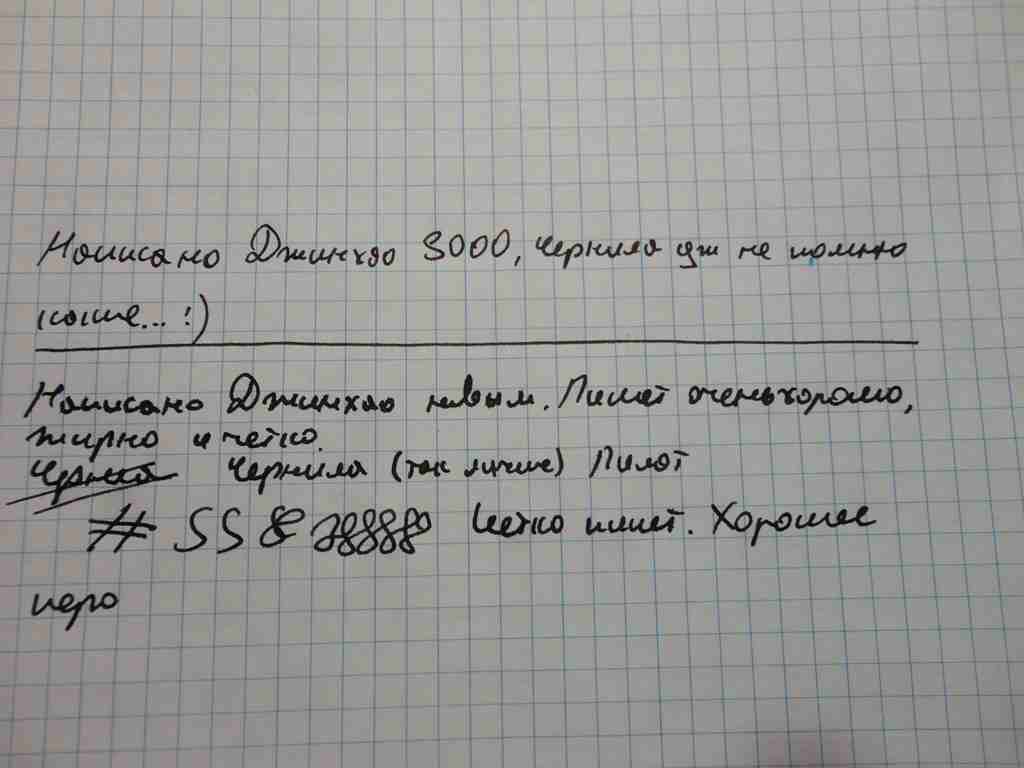 Написано Джинхао 3000, чернила уж не помню
какие... :)
Написано Джинхао новым. Пишет очень хорошо,
жирно и четко.
Чернила (так лучше) Пилот
# S S & 888888 Четко пишет. Хорошее
перо